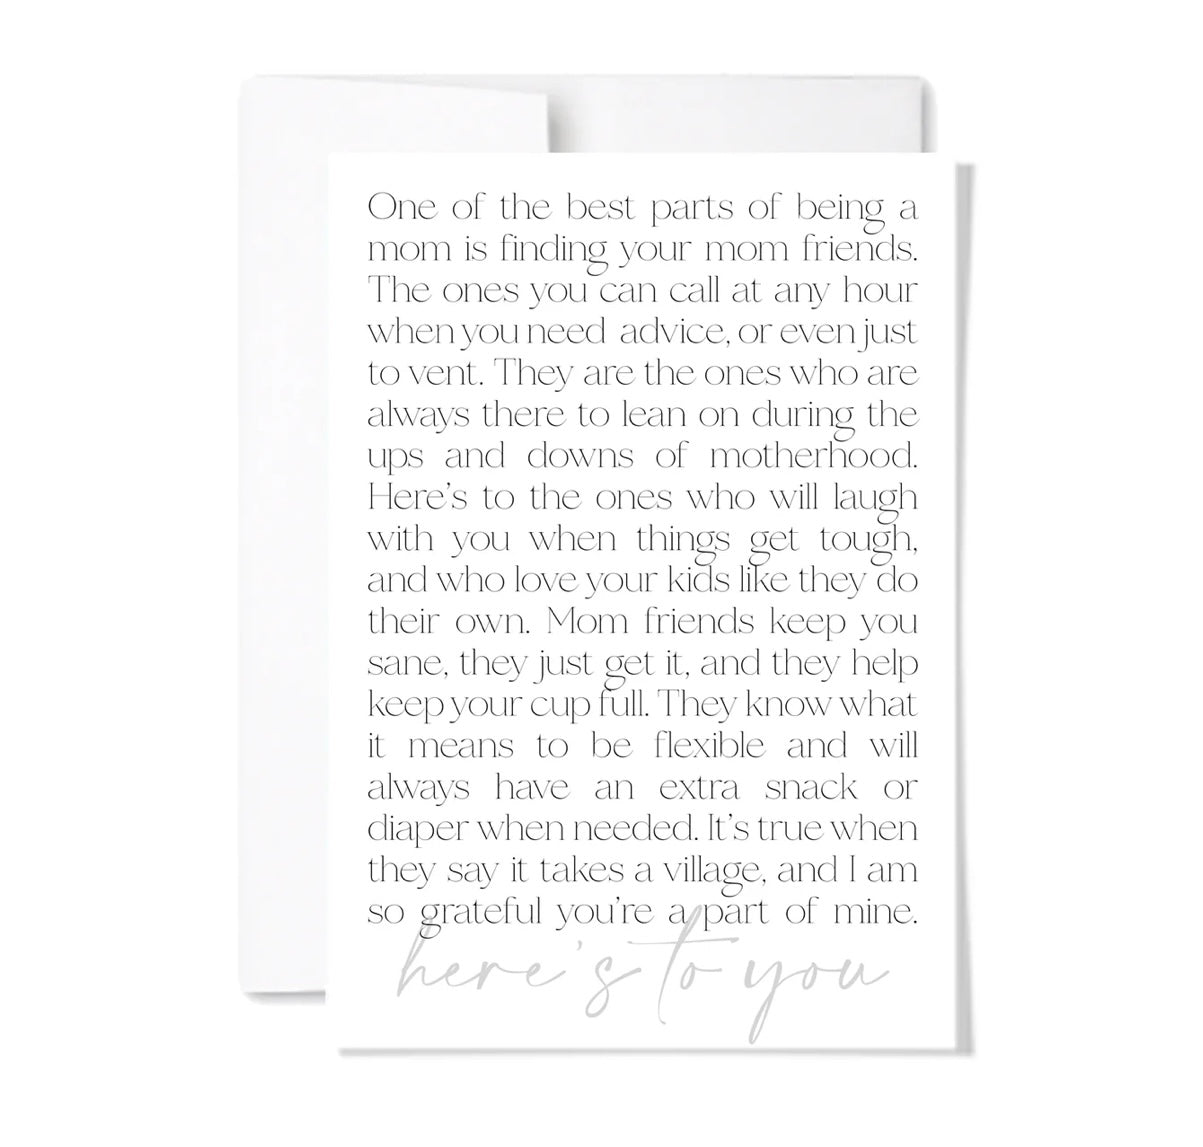 One of the best parts of being a
mom is finding your mom friends.
The ones you can call at any hour
when you need advice, or even just
to vent. They are the ones who are
always there to lean on during the
ups and downs of motherhood.
Here's to the ones who will laugh
with you when things get tough,
and who love your kids like they do
their own. Mom friends keep you
sane, they just get it, and they help
keep your cup full. They know what
it means to be flexible and will
always have an extra snack or
diaper when needed. It's true when
they say it takes a village, and I am
so grateful you're a part of mine.
here's to you